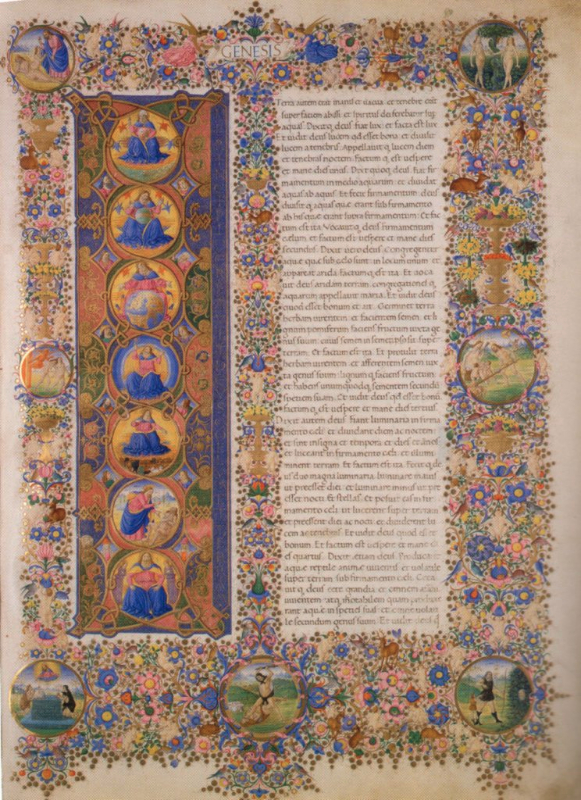 GENESIS
Terra autem erat inanis et uacua: et tenebre erāt
super faciem abissi: et spiritus dei ferebatur sup
aquas. Dixitq; deus fiat lux: et facta est lux
Et uidit deus lucem qd esset bona: et diuisit
lucem a tenebris. Appellauitq; lucem diem
et tenebras noctem. Factumq; est uespere
et mane dies unus. Dixit quoq; deus Fiat fir
mamentum in medio aquarum: et diuidat
aquas ab aquis. Et fecit firmamentum deus
diuisitq; aquas que erant sub firmamento
ab his que erant supra firmamentum Et fac
tum est ita Vocauitq; deus firmamentum
caelum. et factum est uespere et mane dies
secundus. Dixit uero deus Congregentur
aque que sub celo sunt in locum unum et
appareat arida factumq; est ita. Et uoca
uit deus aridam terram. congregationesq;
aquarum appellauit maria. Et uidit deus
quod esset bonum et ait. Germinet terra
herbam uirentem et facientem semen. et li
gnum pomiferum faciens fructum iuxta ge
nus suum. cuius semen in semetipso sit super
terram. Et factum est ita. Et protulit terra
herbam uirentem et afferentem semen iux
ta genus suum. lignumq; faciens fructum:
et habens unumquodq; sementem secundū
speciem suam. Et uidit deus qd esset bonū
factumq; est uespere et mane dies tertius.
Dixit autem deus fiant luminaria in firma
mento celi et diuidant diem ac noctem:
et sint in signa et tempora et dies et annos
et luceant in firmamento celi. et illumi
nent terram Et factum est ita. Fecitq; de
us duo magna luminaria. luminare maius
ut preesset diei: et luminare minus ut pre
esset nocti et stellas. Et posuit eas in fir
mamento celi ut lucerent super terram
et preessent diei ac nocti: et diuiderent lu
cem ac tenebras Et uidit deus quod esset
bonum. Et factum est uespere et mane di
es quartus. Dixit etiam deus Producant
aque reptile anime uiuentis et uolatile
super terram. sub firmamento celi. Crea
uitq; deus cete grandia et omnem animam
uiuentem atq; motabilem quam produxe
rant aque in species suas. et omne uolati
le secundum genus suum. Et uidit deus q